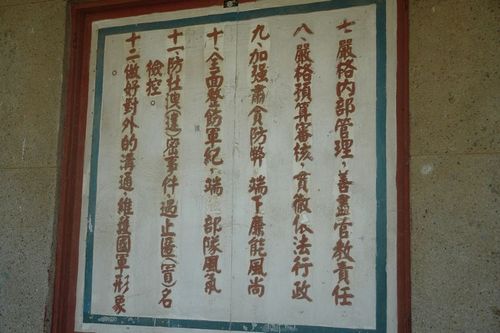 七、嚴格內部管理，善盡官教責任
八、嚴格預算審核，貫徹依法行政
九、加強肅貪防弊，端下廉能風尚
十、全面整飭軍紀，端 部隊風氣
十一、防杜洩(遺)密事件遏止匿(冒)名
檢控。
十二做好對外的溝通維護國軍形象
。